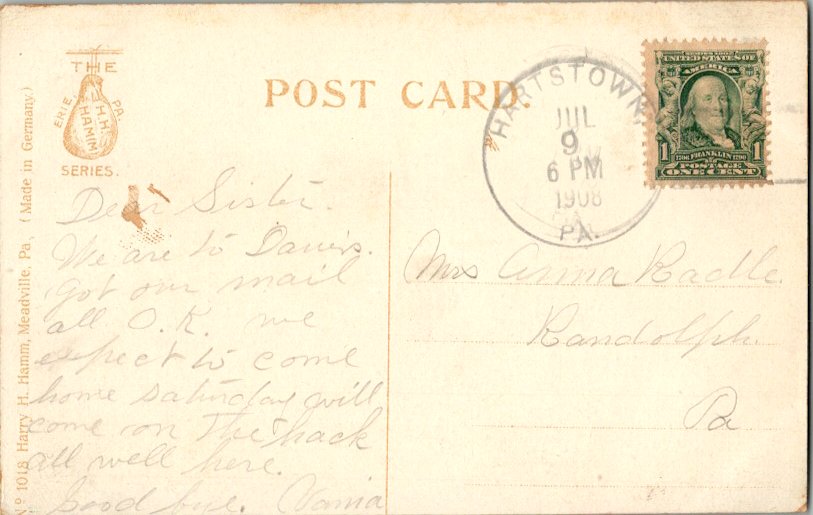 THE
ERIE PA.
H. H. HAMM
SERIES.
POST CARD.
HARTSTOWN
JUL
9
6 PM
1908
PA.
UNITED STATES OF
AMERICA
1706 FRANKLIN 1790
1 POSTAGE 1
ONE CENT
No 1018 Harry H. Hamm, Meadville, Pa, (Made in Germany.)
Dear Sister.
We are to
got our mail
all O.K. we
expect to come
home Saturday will
come on the hack
all well here.
Good bye.
Mrs Anna Radle.
Randolph
Pa